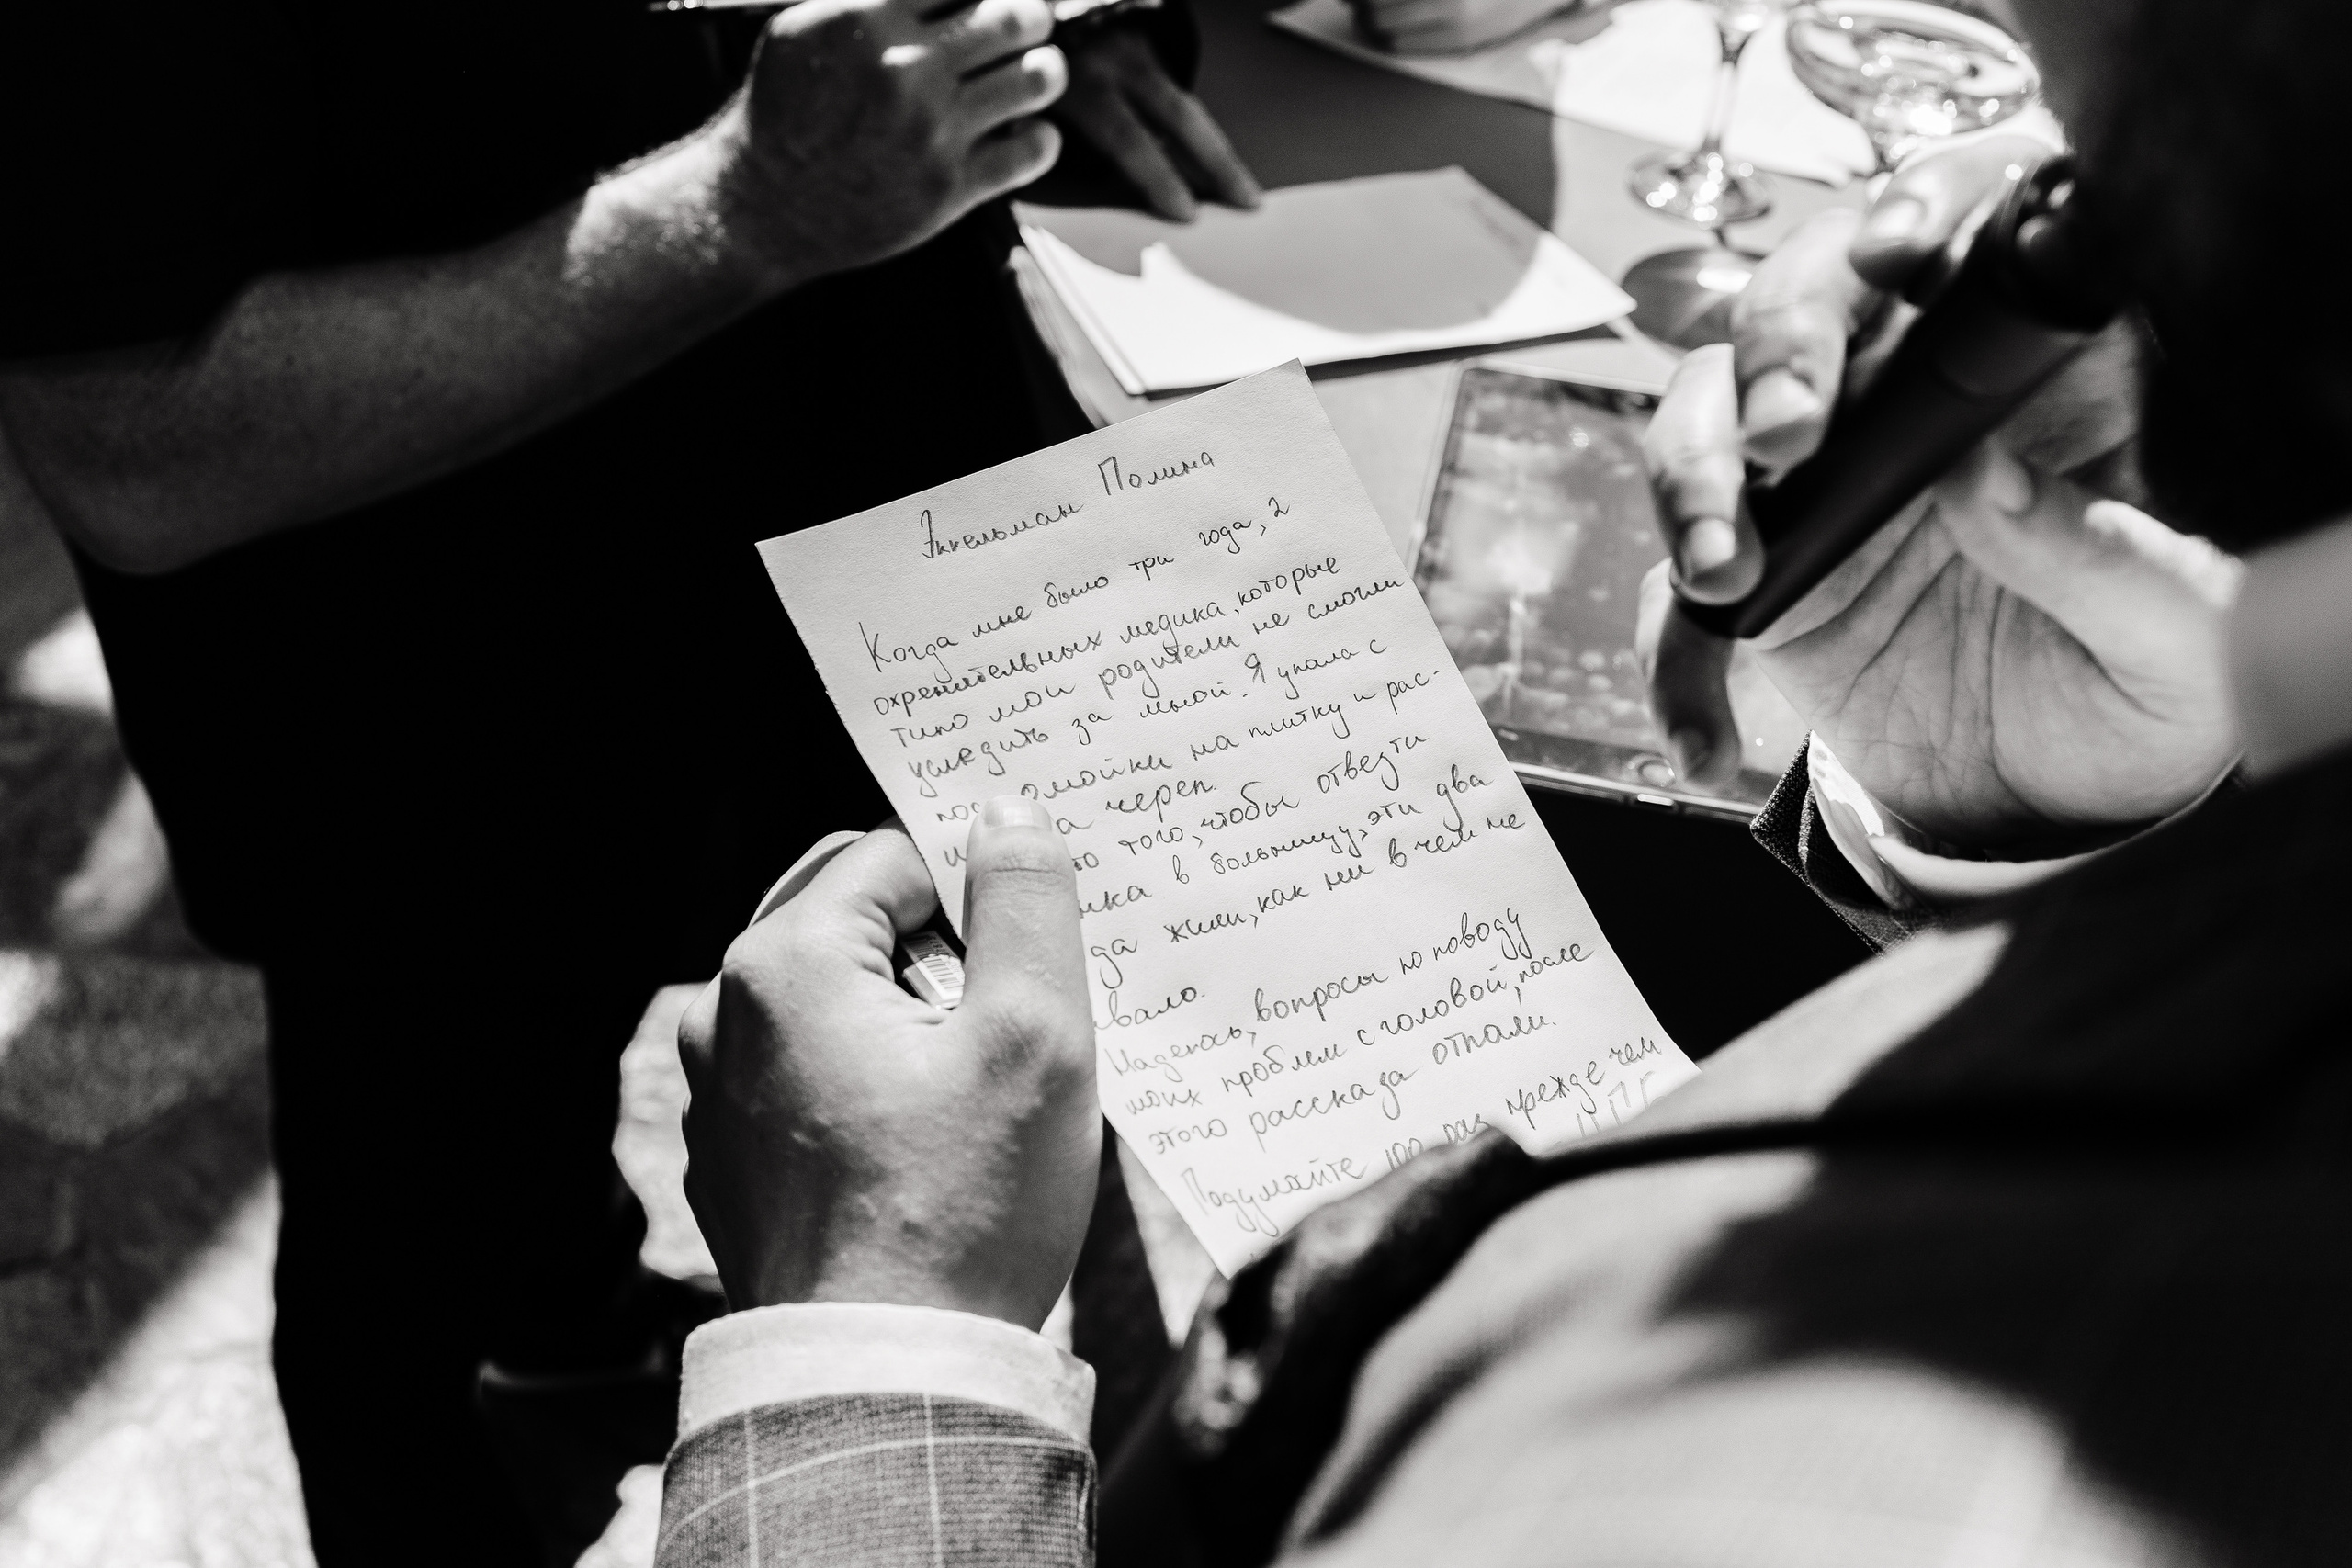 Эккельман Полина
Когда мне было три года, 2
охренительных медика, которые
типо мои родители не смогли
уследить за мной. Я упала с
мойки на плитку и рас-
а череп.
то того, чтобы отвезти
нка в больницу, эти два
да жили, как ни в чем не
вало.
Надеюсь, вопросы по поводу
моих проблем с головой, после
этого рассказа отпали.
Подумайте 100 раз прежде чем